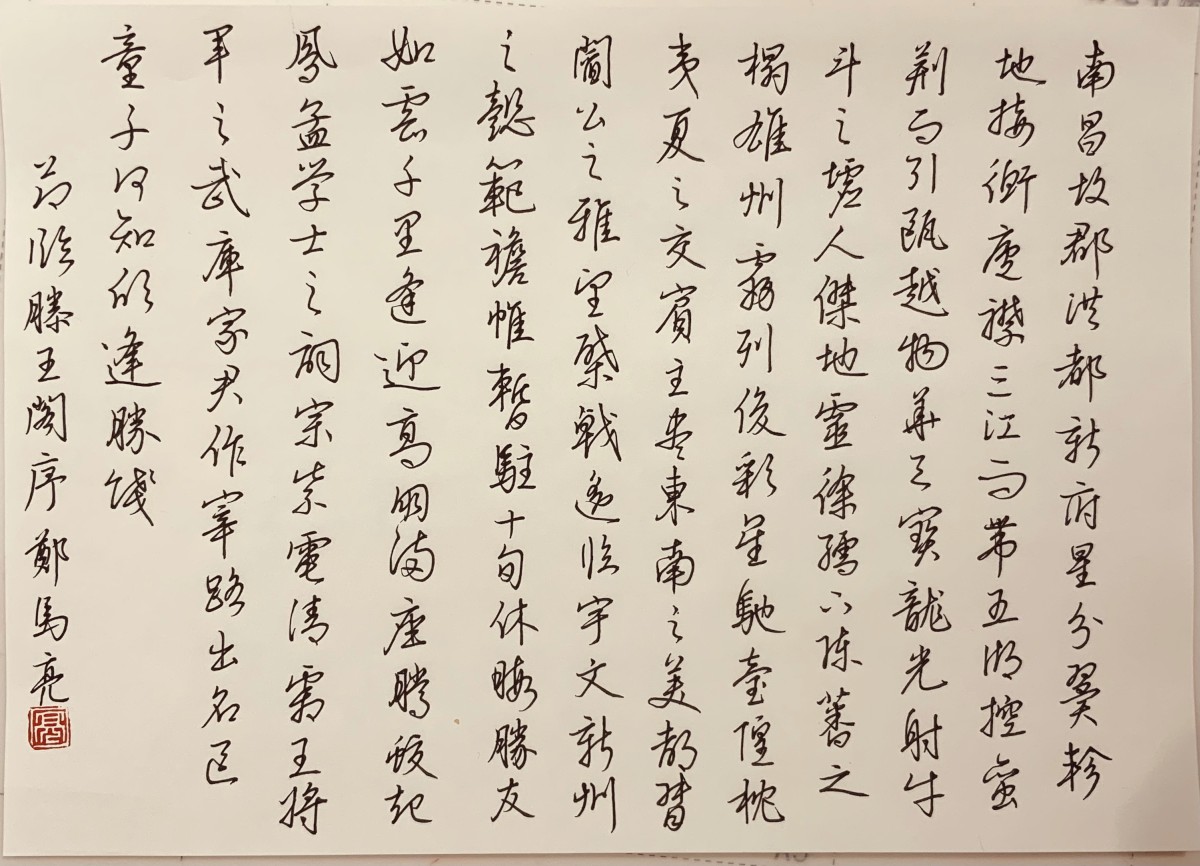 南昌故郡洪都新府星分翼軫
地接衡廬襟三江而帶五湖控蠻
荆而引甌越物華天寶龍光射牛
斗之墟人傑地靈徐孺下陳蕃之
榻雄州霧列俊彩星馳臺隍枕
夷夏之交賓主盡東南之美都督
閻公之雅望棨戟遥临宇文新州
之懿範襜帷暫駐十旬休暇勝友
如雲千里逢迎高朋满座騰蛟起
鳳孟学士之詞宗紫電清霜王将
軍之武庫家君作宰路出名區
童子何知躬逢勝餞
节临滕王閣序鄭馬亮